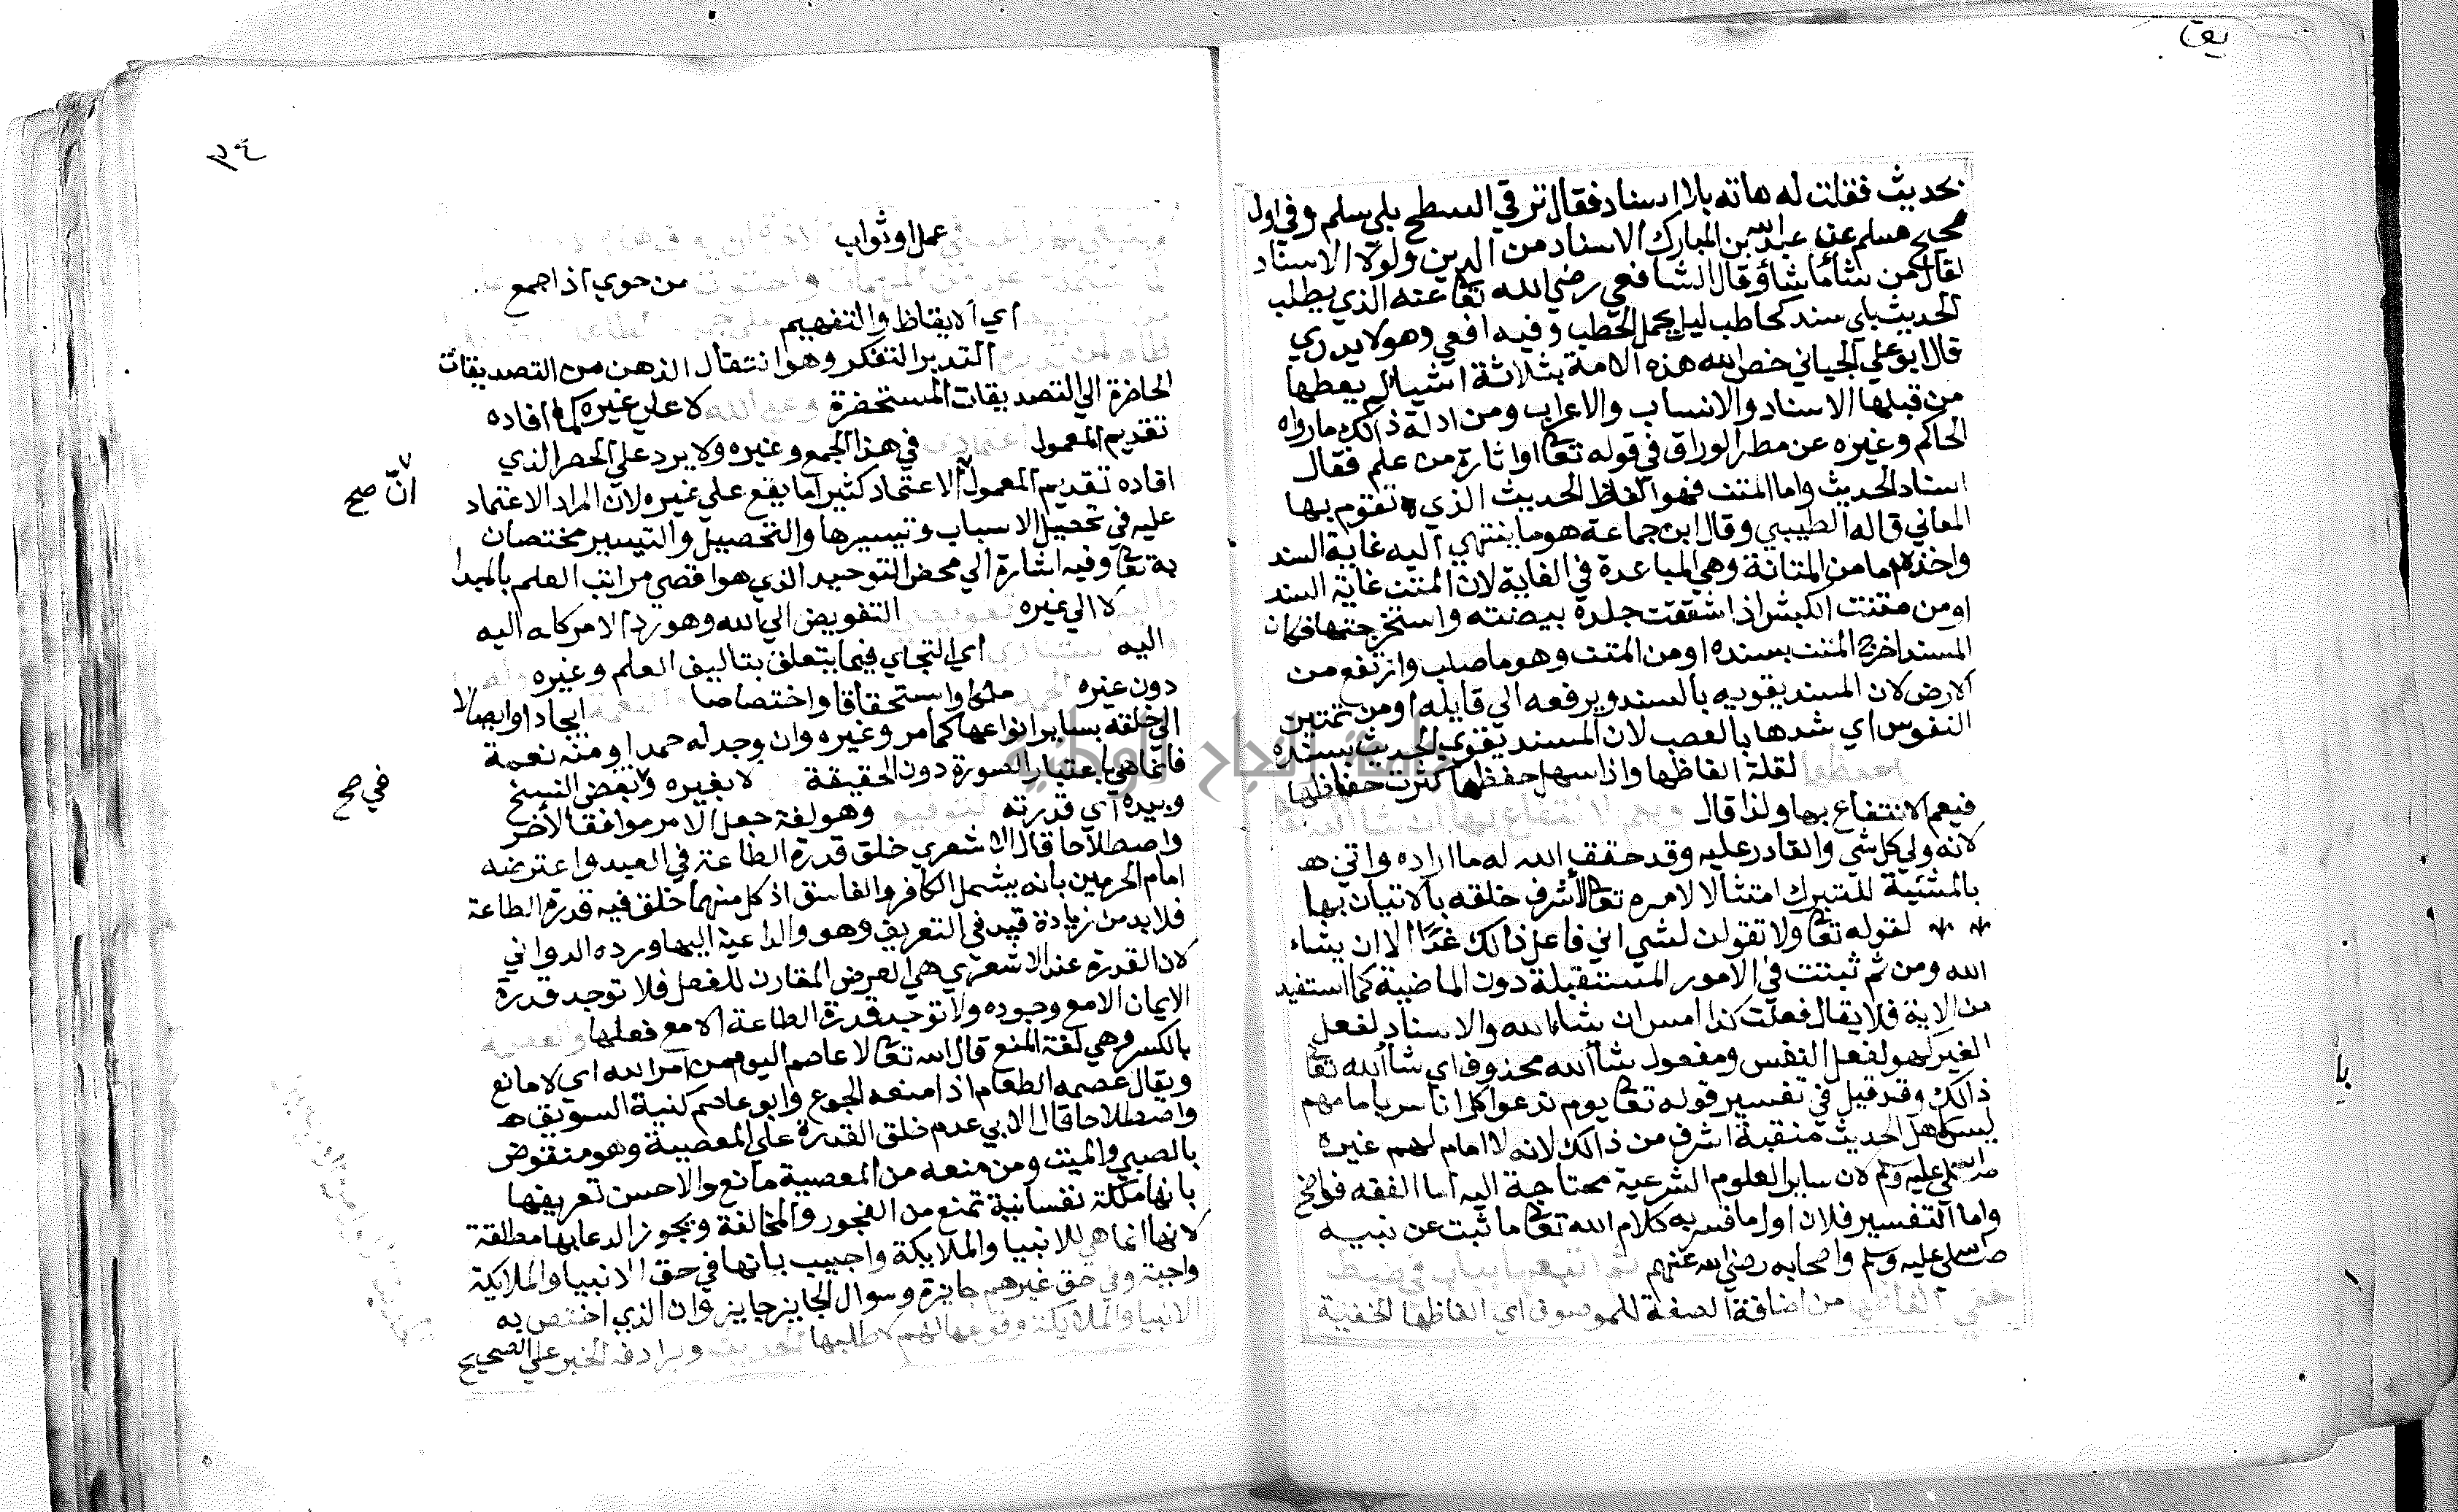 يقا
بحديث فقلت له هاته بلا اسناد فقال ترقي السطح بلي سلم وفي اول
صحيح مسلم عن عبد الله بن المبارك الاسناد من الدين ولولا الاسناد
لقال من شأ ما شأ وقال الشافعي رضي الله تعا عنه الذي يطلب
الحديث بلي سند كحاطب ليل يحمل الحطب وفيه افعي وهو لا يدري
قال ابو علي الجياني خص الله هذه الامة بثلاثة اشيا لم يعطها
من قبلها الاسناد والانساب والاعراب ومن ادلة ذالك ما رواه
الحاكم وغيره عن مطر الوراق في قوله تعا اواثارة من علم فقال
اسناد الحديث واما المتن فهو الفاظ الحديث الذي تقوم بها
المعاني قاله الطيبي وقال ابن جماعة هو ما ينتهي اليه غاية السند
واخذه اما من المتانة وهي المباعدة في الغاية لان المتن غاية السند
او من متنت الكبش اذا شققت جلدة بيضته واستخرجتها فكان
المسند اخرج المتن بسنده او من المتن وهو ما صلب وارتفع من
الارض لان المسند يقويه بالسند ويرفعه الي قايله او من تمتين
النفوس اي شدها بالعصب لان المسند يقوي الحديث بسنده
لقلة الفاظها واذا سهل حفظها كثرت حفاظها
فيعم الانتفاع بها ولذا قال
لانه ولي كل شي والقادر عليه وقد حقق الله له ما اراده واتي هـ
بالمشئية للتبرك امتثالا لامره تعا لأشرف خلقه بالاتيان بها
لقوله تعا ولا تقولن لشي اني فاعل ذالك غدًا الا ان يشاء
الله ومن ثم ثبتت في الامور المستقبلة دون الماضية كما استفيد
من الاية فلا يقال فعلت كذا امس ان شاء الله والاسناد لفعل
الغير لهو لفعل النفس ومفعول شأ الله محذوف اي شأ الله تعا
ذالك وقد قيل في تفسير قوله تعا يوم ندعوا كل اناس بامامهم
ليس لاهل الحديث منقبة اشرف من ذالك لانه لا امام لهم غيره
صلى الله عليه وسلم لان ساير العلوم الشرعية محتاجة اليه اما الفقه فواضح
واما التفسير فلان اول ما فسر به كلام الله تعا ما ثبت عن نبيه
صلى الله عليه وسلم واصحابه رضي الله عنهم
من اضافة الصفة للموصوف اي الفاظها الخفية
با
٣٤
عمل او ثواب
من حوي اذا جمع
اي الايقاظ والتفهيم
التدبر التفكر وهو انتقال الذهن من التصديقات
الحاضرة الي التصديقات المستحضرة لا علي غيره كما أفاده
تقديم المعمول في هذا الجمع وغيره ولا يرد علي الحصر الذي
افاده تقديم المعمول الاعتماد كثير اما يقع علي غيره لان المراد الاعتماد
انّ صح
عليه في تحصيل الاسباب وتيسيرها والتحصيل والتيسير مختصان
به تعا وفيه اشارة الي محض التوحيد الذي هو اقصي مراتب العلم بالمبدا
لا الي غيره التفويض الي الله وهو رد الامر كله اليه
اليه اي التجاي فيما يتعلق بتاليف العلم وغيره
دون غيره ملكا واستحقاقا واختصاصا ايجادا وايصالا
الي خلقه بساير انواعها كما مر وغيره وان وجد له حمد او منه نعمة
فانما هي باعتبار الصورة دون الحقيقة لا بغيره وبعض النسخ
في صح
وبيده اي قدرته وهو لغة جعل الامر موافقا لأخر
واصطلاحا قال الاشعري خلق قدرة الطاعة في العبد واعترضه
امام الحرمين بانه يشمل الكافر والفاسق اذ كل منهما خلق فيه قدرة الطاعة
فلا بد من زيادة قيد في التعريف وهو والداعية اليها ورده الدواني
لان القدرة عند الاشعري هي العرض المقارن للفعل فلا توجد قدرة
الايمان الا مع وجوده ولا توجد قدرة الطاعة الا مع فعلها
بالكسر وهي لغة المنع قال الله تعا لا عاصم اليوم من امر الله اي لا مانع
ويقال عصمه الطعام اذا منعه الجوع وابو عاصم كنية السويق هـ
واصطلاحا قال الابي عدم خلق القدرة علي المعصية وهو منقوض
بالصبي والميت ومن منعه من المعصية مانع والاحسن تعريفها
بانها ملكة نفسانية تمنع من الفجور والمخالفة ويجوز الدعا بها مطلقة
لانها انما هي للانبيا والملايكة واجيب بانها في حق الانبيا والملايكة
واجبة وفي حق غيرهم جايزة وسوال الجايز جايز وان الذي اختص به
الانبيا والملايكة وقوعها لهم لا طلبها ويرادفه الخبر علي الصحيح
جامعة النجاح الوطنية